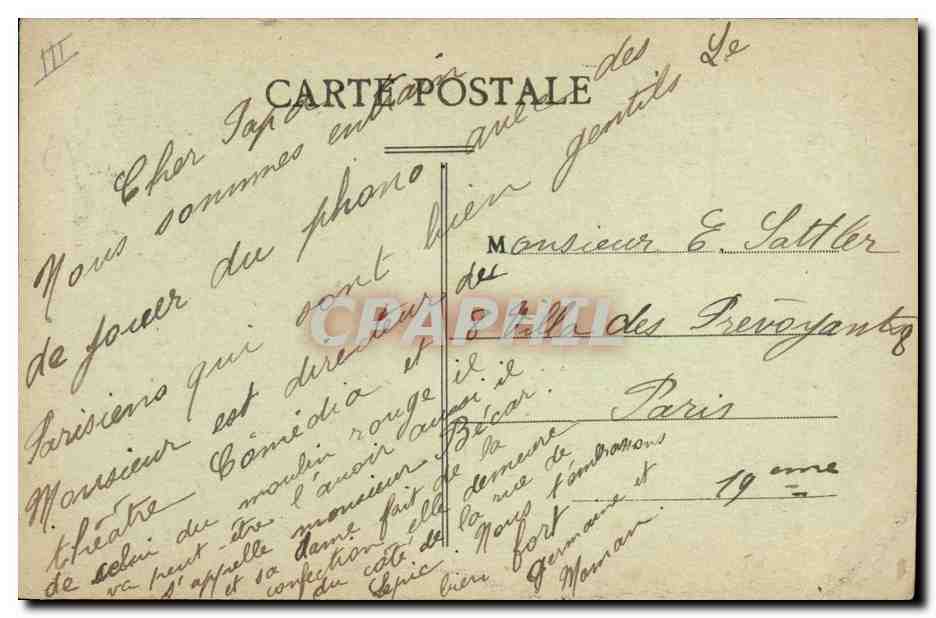 III
CARTE POSTALE
Cher Papa
Nous sommes entrain
de jouer du phono avec des
Parisiens qui sont bien gentils Le
Monsieur est directeur des
théâtre Comédia et
de celui du moulin rouge il
va peut-être l'avoir aussi il
s'appelle monsieur Bécar.
et sa dame fait de la
confection elle demeure
du côté de la rue de
Lepic. Nous t'embrassons
bien fort
Germaine et
Maman.
Monsieur E. Sattler
8 Villa des Prévoyants
Paris
19eme
CPAPHIL